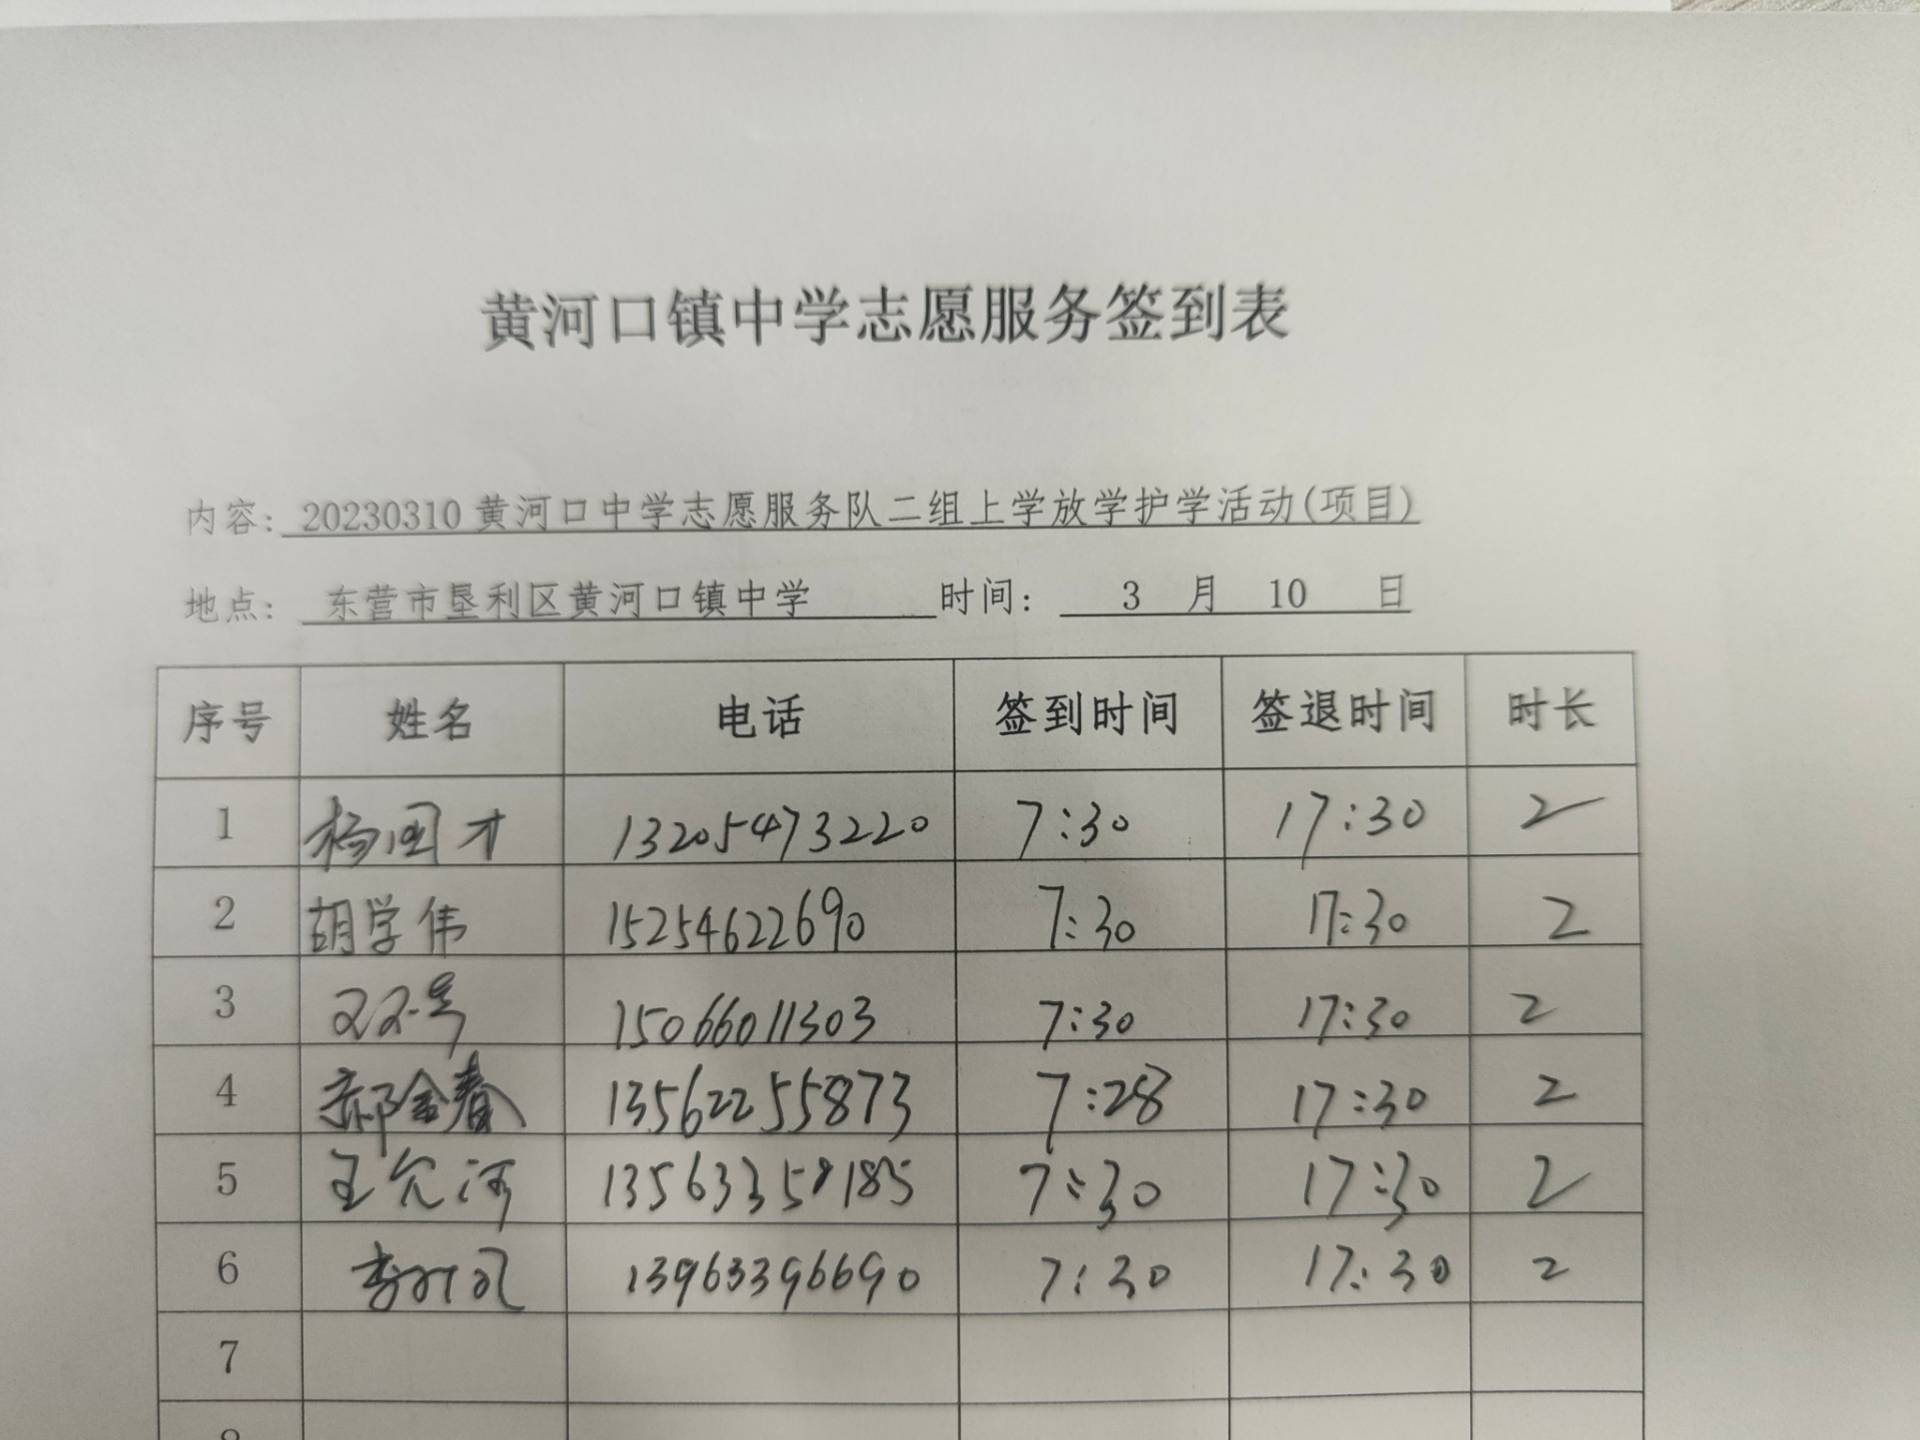 黄河口镇中学志愿服务签到表
内容: 20230310黄河口中学志愿服务队二组上学放学护学活动(项目)
地点: 东营市垦利区黄河口镇中学 时间: 3 月 10 日
序号 姓名 电话 签到时间 签退时间 时长
1 杨国才 13205473220 7:30 17:30 2
2 胡学伟 15254622690 7:30 17:30 2
3 15066011303 7:30 17:30 2
4 郝金春 13562255873 7:28 17:30 2
5 王允河 13563358185 7:30 17:30 2
6 13963396690 7:30 17:30 2
7